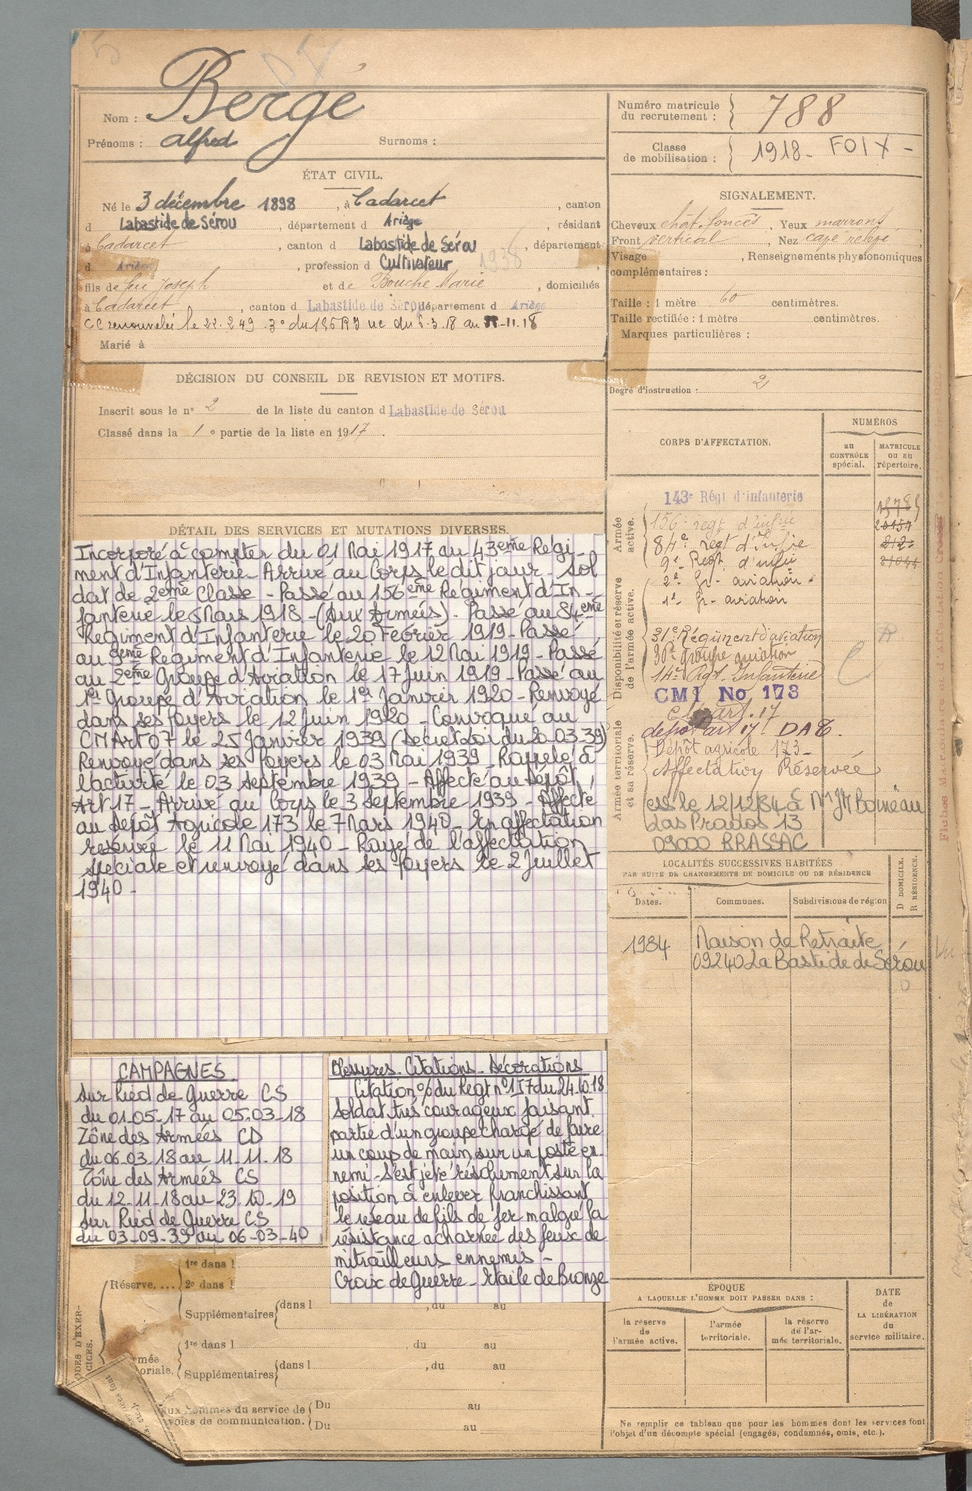 Nom : Bergé
Prénoms : Alfred Surnoms :
ÉTAT CIVIL.
Né le 3 décembre 1898, à Cadarcet, canton
d Labastide de Sérou, département d Ariège, résidant
à Cadarcet, canton d Labastide de Sérou, département
d Ariège, profession d Cultivateur 1936
fils de feu Joseph et de Bouche Marie, domiciliés
à Cadarcet, canton d Labastide de Sérou département d Ariège
CC renouvelée le 22.2.49 3° du 156 RI uc du 6.3.18 au 11-11.18
Marié à
DÉCISION DU CONSEIL DE REVISION ET MOTIFS.
Inscrit sous le n° 2 de la liste du canton d Labastide de Sérou
Classé dans la 1e partie de la liste en 1917.
DÉTAIL DES SERVICES ET MUTATIONS DIVERSES.
Incorporé à compter du 01 Mai 1917 au 43eme Régi-
ment d'Infanterie - Arrivé au Corps le dit jour - Sol
dat de 2eme Classe - Passé au 156eme Regiment d'In-
fanterie le 6 Mars 1918 - (Aux Armées) - Passé au 84eme
Régiment d'Infanterie le 20 Février 1919 - Passé
au 9eme Régiment d'Infanterie le 12 Mai 1919 - Passé
au 2eme Groupe d'Aviation le 17 juin 1919 - Passé au
1er Groupe d'Aviation le 1er Janvier 1920 - Renvoyé
dans ses foyers le 12 juin 1920 - Convoqué au
CM Art 07 le 25 Janvier 1939 (Decret-loi du 20-03-39)
Renvoyé dans ses foyers le 03 Mai 1939 - Rappelé à
l'activité le 03 septembre 1939 - Affecté au Dépôt
Art 17 - Arrivé au Corps le 3 septembre 1939 - Affecté
au dépôt Agricole 173 le 7 Mars 1940 - En affectation
reservée le 11 Mai 1940 - Rayé de l'affectation
spéciale et renvoyé dans ses foyers le 2 juillet
1940 -
CAMPAGNES
Sur Pied de Guerre CS
du 01-05-17 au 05-03-18
Zône des Armées CD
du 06-03-18 au 11-11-18
Zône des Armées CS
du 12-11-18 au 23-10-19
Sur Pied de Guerre CS
du 03-09-39 au 06-03-40
Blessures - Citations - Décorations
Citation % du Regt n° 117 du 24.10.18
Soldat très courageux faisant
partie d'un groupe chargé de faire
un coup de main sur un poste en-
nemi - s'est jeté résolument sur la
position à enlever franchissant
le réseau de fils de fer malgré la
résistance acharnée des feux de
mitrailleurs ennemis -
Croix de Guerre - Etoile de Bronze
Réserve....
1re dans l
2e dans l
Supplémentaires dans l , du au
1re dans l , du au
Supplémentaires dans l , du au
Aux hommes du service de
voies de communication.
Du au
Du au
Numéro matricule
du recrutement : 788
Classe
de mobilisation : 1918 - FOIX -
SIGNALEMENT.
Cheveux chat. foncés, Yeux marrons
Front vertical, Nez
Visage , Renseignements physionomiques
complémentaires :
Taille : 1 mètre 60 centimètres.
Taille rectifiée : 1 mètre centimètres.
Marques particulières :
Degré d'instruction : 2
CORPS D'AFFECTATION.
NUMÉROS
au CONTRÔLE spécial.
MATRICULE OU AU répertoire.
Armée active.
Disponibilité et réserve de l'armée active.
Armée territoriale et sa réserve.
143e Régt d'infanterie
156e regt d'infie
84e Regt d'Infie
9e Regt d'infie
2e Gr. aviation
1er Gr. aviation
31e Régiment d'aviation
36e groupe aviation
14e Rgt Infanterie
CMI No 173
dépôt art 17 DAT.
Dépôt agricole 173 -
Affectation Réservée
le 12/12/84 à Mr JM
Las Prados 13
09000 BRASSAC
LOCALITÉS SUCCESSIVES HABITÉES
PAR SUITE DE CHANGEMENTS DE DOMICILE OU DE RÉSIDENCE
Dates. Communes. Subdivisions de région
D DOMICILE.
R RÉSIDENCE.
1984 Maison de Retraite
09240 La Bastide de Sérou
ÉPOQUE
A LAQUELLE L'HOMME DOIT PASSER DANS :
la réserve de l'armée active.
l'armée territoriale.
la réserve de l'armée territoriale.
DATE
DE
LA LIBÉRATION
du
service militaire.
Ne remplir ce tableau que pour les hommes dont les services font
l'objet d'un décompte spécial (engagés, condamnés, omis, etc.).